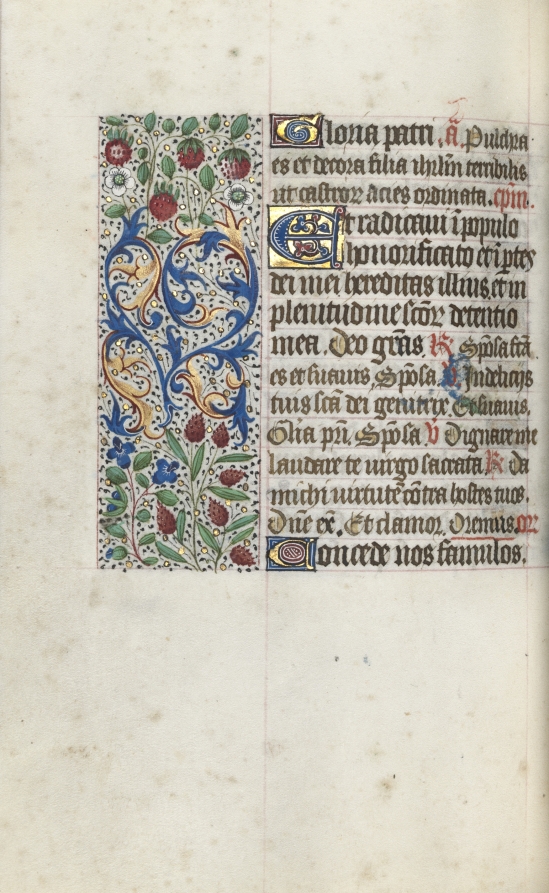 Gloria patri. a. Pulchra
es et decora filia ihrlm terribilis
ut castrorum acies ordinata. cpm.
Et radicaui i populo
honorificato et i ptes
dei mei hereditas illius. et in
plenitudine scor detentio
mea. Deo gras. R Sposa fca
es et suauis. Sposa. V Indeliciis
tuis sca dei genitrix. Et suauis.
Glia pri. Sposa V Dignare me
laudare te uirgo sacrata R Da
michi uirtute contra hostes tuos.
Dne ex. Et clamor. Oremus. orr
Concede nos famulos.